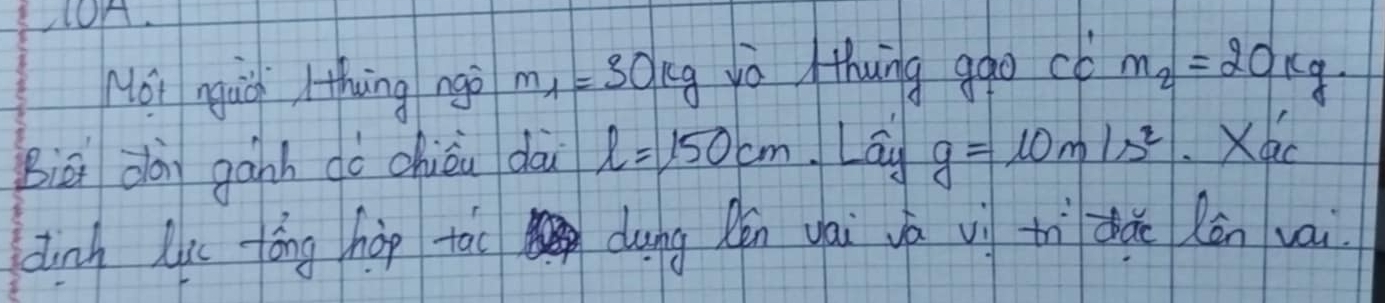 10A.
Một người 1 thùng ngô m₁ = 30kg và 1 thùng gạo có m₂ = 20kg.
Biết đòn gánh có chiều dài l = 150cm. Lấy g = 10m/s². Xác
định lực tổng hợp tác dụng lên vai và vị trí đặc lên vai.